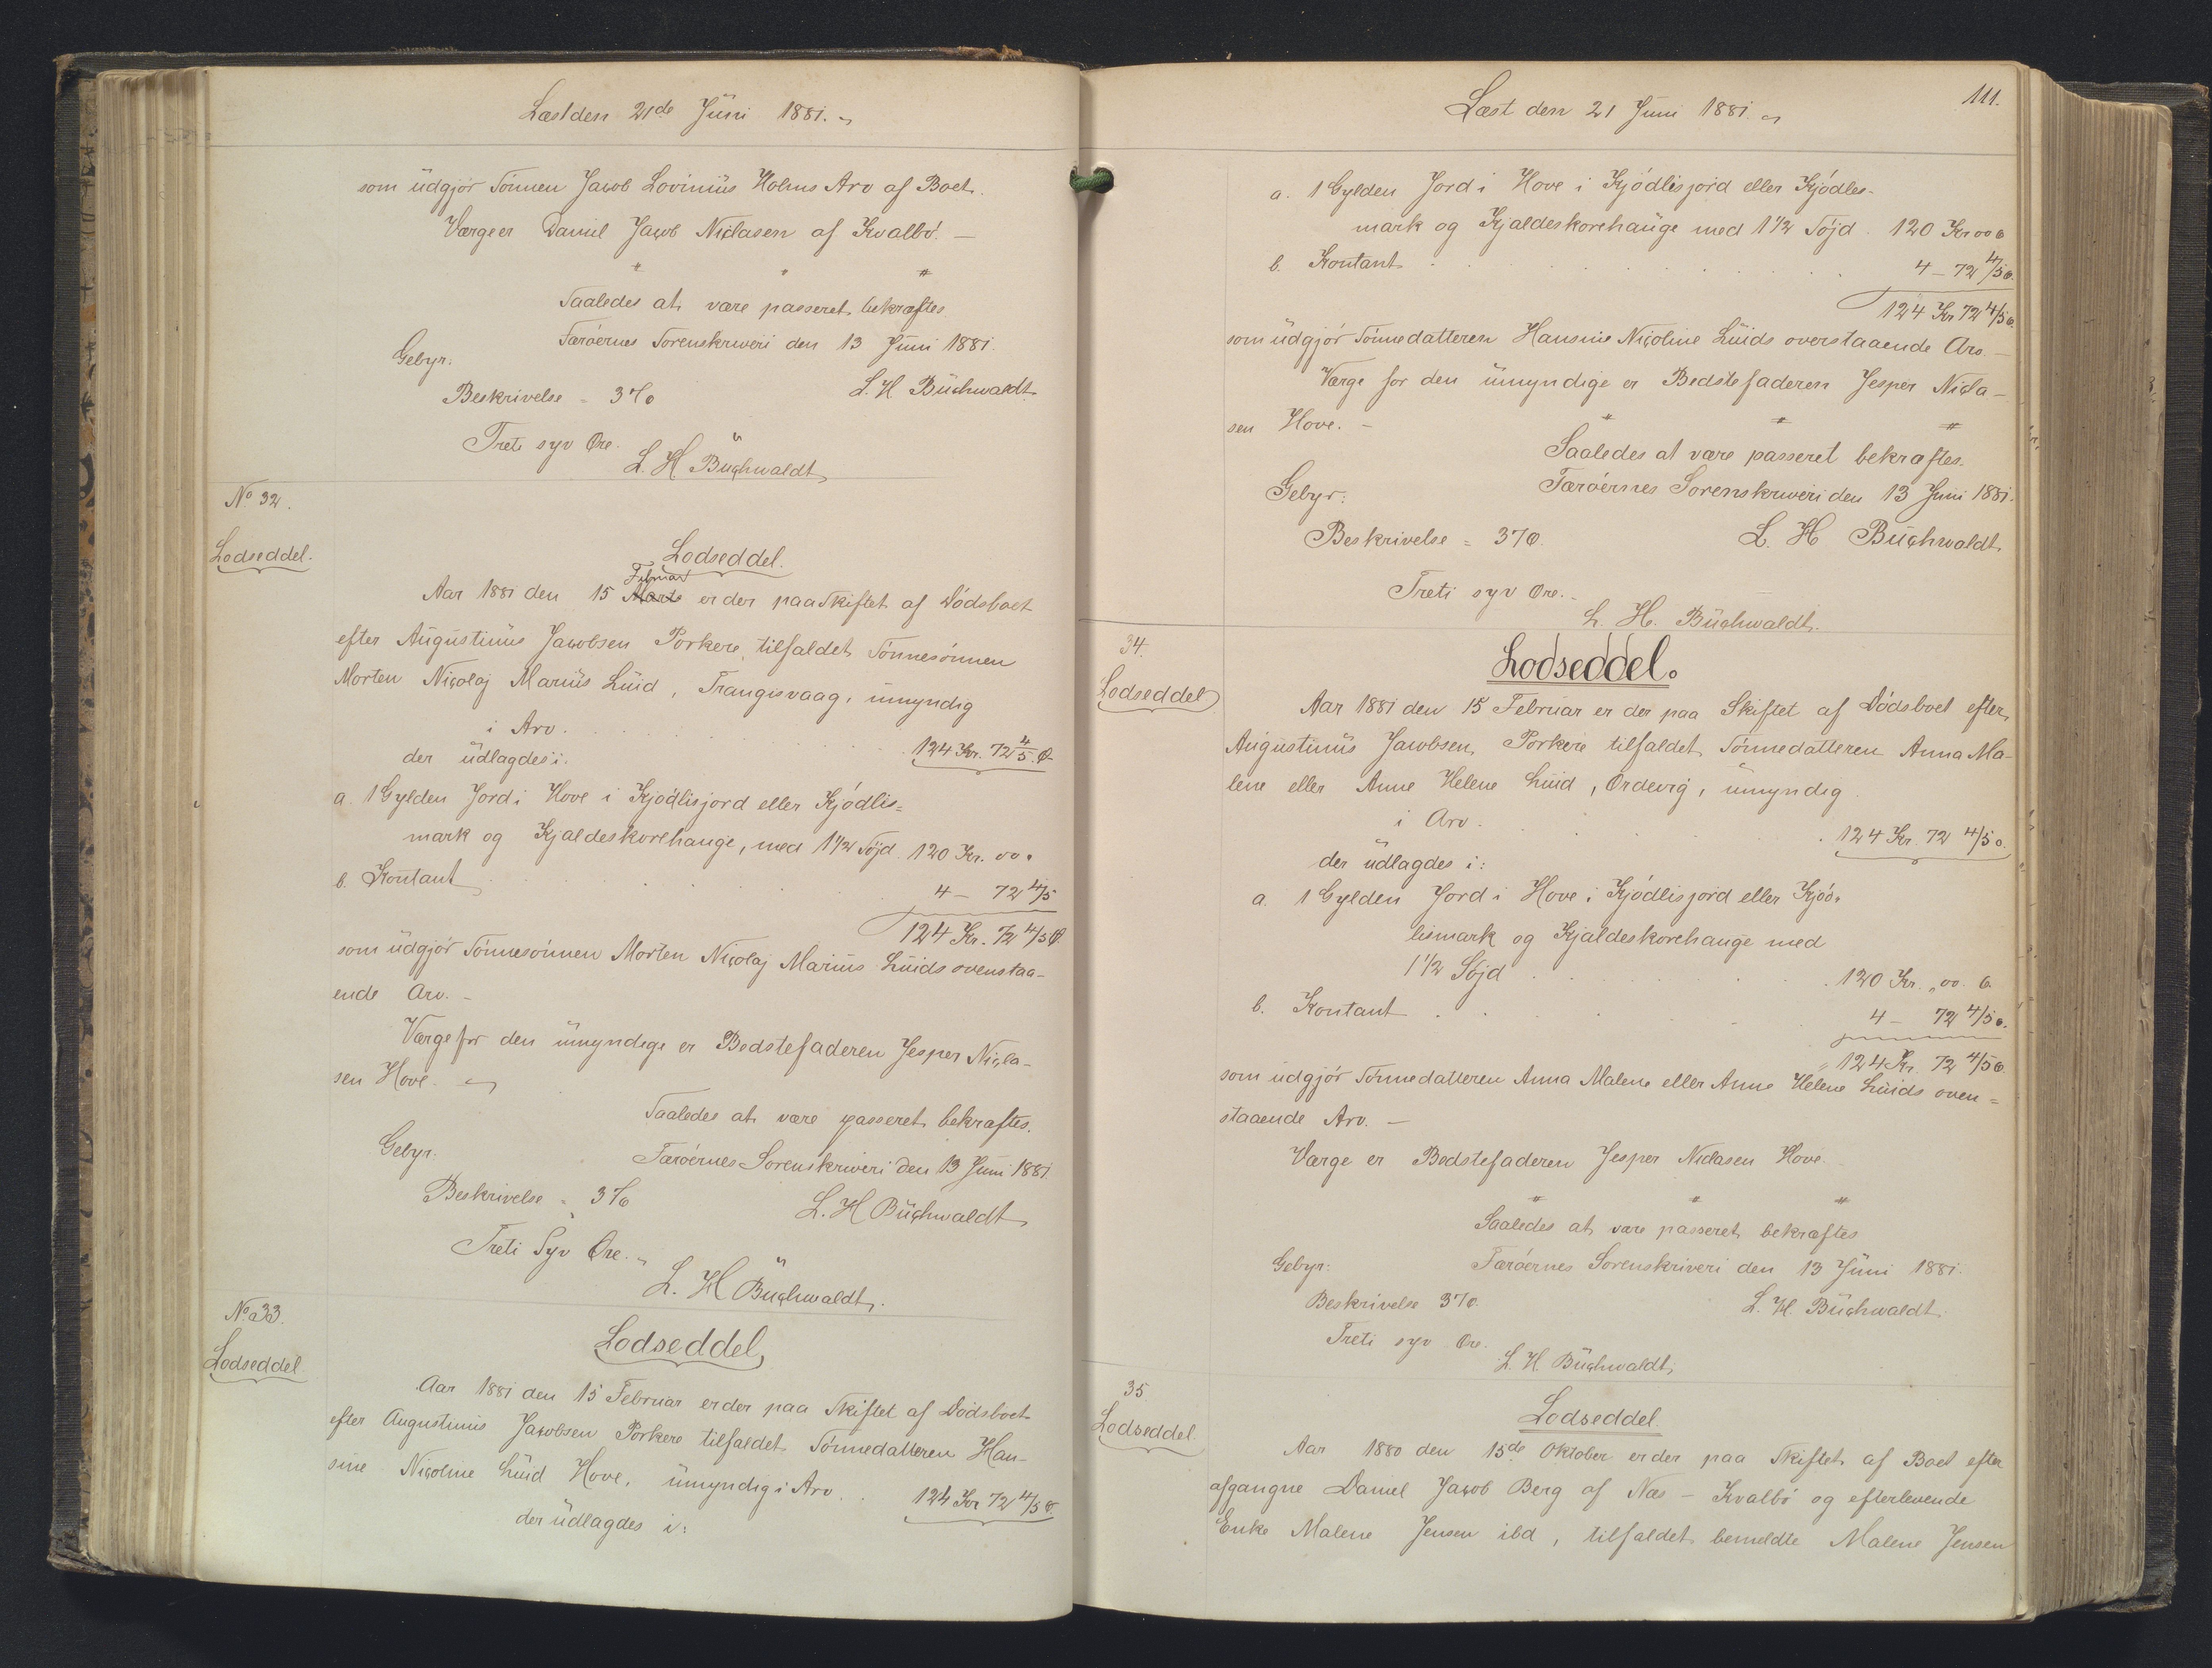 Læst den 21de Juni 1881.
som udgjør Sønnen Jacob Lovinius Holms Arv af Boet.
Værge er Daniel Jacob Niclasen af Kvalbø. —
" " "
Saaledes at være passeret bekræftes
Færøernes Sorenskriveri den 13 Juni 1881.
Gebyr.
L. H Buchwaldt
Beskrivelse = 37 ø
Treti syv Øre.
L. H Buchwaldt
No 32.
Lodseddel.
Lodseddel.
Februar
Aar 1881 den 15 Marts er der paa Skiftet af Dødsboet
efter Augustinus Jacobsen Porkere, tilfaldet Sønnesønnen
Morten Nicolaj Marius Luid, Trangisvaag, umyndig
i Arv . . . 124 Kr. 72 4/5 Ø.
der udlagdes i:
a. 1 Gylden Jord i Hove i Kjødlisjord eller Kjødlis=
mark og Kjaldeskorehauge, med 1 1/2 Søjd. 120 Kr. 00 ø
b. Kontant . . . 4 — 72 4/5
124 Kr. 72 4/5 Ø.
som udgjør Sønnesønnen Morten Nicolaj Marius Luids ovenstaa-
ende Arv. —
Værge for den umyndige er Bedstefaderen Jesper Nicla-
sen Hove.
Saaledes at være passeret bekræftes.
Gebyr.
Færøernes Sorenskriveri den 13 Juni 1881.
Beskrivelse = 37 ø
L. H Buchwaldt
Treti Syv Øre.
L. H Buchwaldt.
No. 33.
Lodseddel
Lodseddel
Aar 1881 den 15 Februar er der paa Skiftet af Dødsboet
efter Augustinus Jacobsen Porkere tilfaldet Sønnedatteren Han-
sine Nicoline Luid Hove, umyndig i Arv . . 124 Kr 72 4/5 ø.
der udlagdes i:
111.
Læst den 21 Juni 1881.
a. 1 Gylden Jord i Hove i Kjødlisjord eller Kjødles-
mark og Kjaldeskorehauge med 1 1/2 Søjd. 120 Kr 00 ø
b. Kontant . . . 4 — 72 4/5 ø.
124 Kr 72 4/5 ø.
som udgjør Sønnedatteren Hansine Nicoline Luids overstaaende Arv. —
Værge for den umyndige er Bedstefaderen Jesper Nicla-
sen Hove. —
" " "
Saaledes at være passeret bekræftes.
Færøernes Sorenskriveri den 13 Juni 1881.
Gebyr:
Beskrivelse = 37 Ø.
L. H Buchwaldt
Treti syv Øre.
L. H. Buchwaldt.
34.
Lodseddel
Lodseddel.
Aar 1881 den 15 Februar er der paa Skiftet af Dødsboet efter
Augustinus Jacobsen, Porkere tilfaldet Sønnedatteren Anna Ma-
lene eller Anne Helene Luid, Ordevig, umyndig
i Arv . . . 124 Kr. 72 4/5 ø.
der udlagdes i:
a. 1 Gylden Jord i Hove i Kjødlisjord eller Kjød-
lismark og Kjaldeskorehauge med
1 1/2 Søjd . . . 120 Kr. 00 ø.
b. Kontant . . . 4 — 72 4/5 ø.
124 Kr. 72 4/5 ø.
som udgjør Sønnedatteren Anna Malene eller Anne Helene Luids oven=
staaende Arv. —
Værge er Bedstefaderen Jesper Niclasen Hove.
" " "
Saaledes at være passeret bekræftes
Gebyr:
Færøernes Sorenskriveri den 13 Juni 1881.
Beskrivelse 37 ø.
L. H. Buchwaldt.
Treti syv Øre.
L. H Buchwaldt
35
Lodseddel.
Lodseddel
Aar 1880 den 15de Oktober er der paa Skiftet af Boet efter
afgangne Daniel Jacob Berg af Næs - Kvalbø og efterlevende
Enke Malene Jensen ibd, tilfaldet bemeldte Malene Jensen